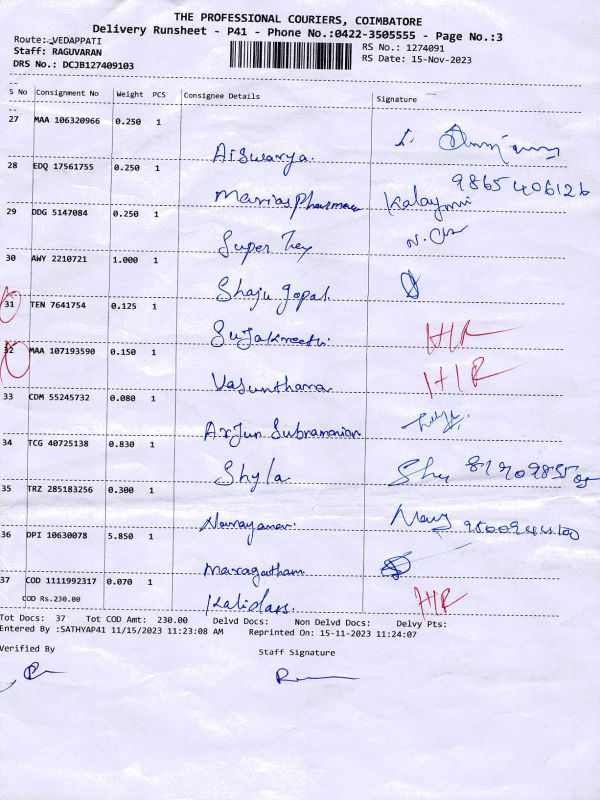 THE PROFESSIONAL COURIERS, COIMBATORE
Delivery Runsheet - P41 - Phone No.:0422-3505555 - Page No.:3
Route: VEDAPPATI
RS No.: 1274091
Staff: RAGUVARAN
RS Date: 15-Nov-2023
DRS No.: DCJB127409103
S No Consignment No Weight PCS Consignee Details Signature
27 MAA 106320966 0.250 1
Aiswarya.
28 EDQ 17561755 0.250 1
Marias Pharmacy 9865406126
29 DDG 5147084 0.250 1
Super
30 AWY 2210721 1.000 1
Shaju gopal
31 TEN 7641754 0.125 1
HR
32 MAA 107193590 0.150 1
Vasunthara HR
33 CDM 55245732 0.080 1
Arjun Subramanian
34 TCG 40725138 0.830 1
Shyla
35 TRZ 285183256 0.300 1
Narayanan.
36 DPI 10630078 5.850 1
Maragatham
37 COD 1111992317 0.070 1
COD Rs.230.00 Kalidass. HR
Tot Docs: 37 Tot COD Amt: 230.00 Delvd Docs: Non Delvd Docs: Delvy Pts:
Entered By :SATHYAP41 11/15/2023 11:23:08 AM Reprinted On: 15-11-2023 11:24:07
Verified By Staff Signature